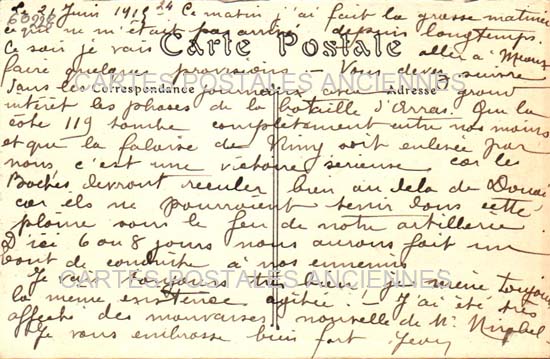 Le 21 Juin 1915 24 Ce matin j'ai fait la grasse matinée
ce que ne m'était pas arrivé depuis longtemps.
Carte Postale
Ce soir je vais aller à
faire quelques provisions - Vous devez suivre
CARTES POSTALES ANCIENNES
Correspondance
Adresse
dans les journaux avec grand
intérêt les phases de la bataille d'Arras. Que la
côte 119 tombe complètement entre nos mains
et que la falaise de Vimy soit enlevée par
nous c'est une victoire sérieuse car les
Boches devront reculer bien au delà de Douai
car ils ne pourraient tenir dans cette
plaine sous le feu de notre artillerie
D'ici 6 ou 8 jours nous aurons fait un
bout de conduite à nos ennemis
CARTES POSTALES ANCIENNES
Je vais toujours très bien je mène toujours
la même existence agitée - J'ai été très
affecté des mauvaises nouvelle de Mr
Je vous embrasse bien fort